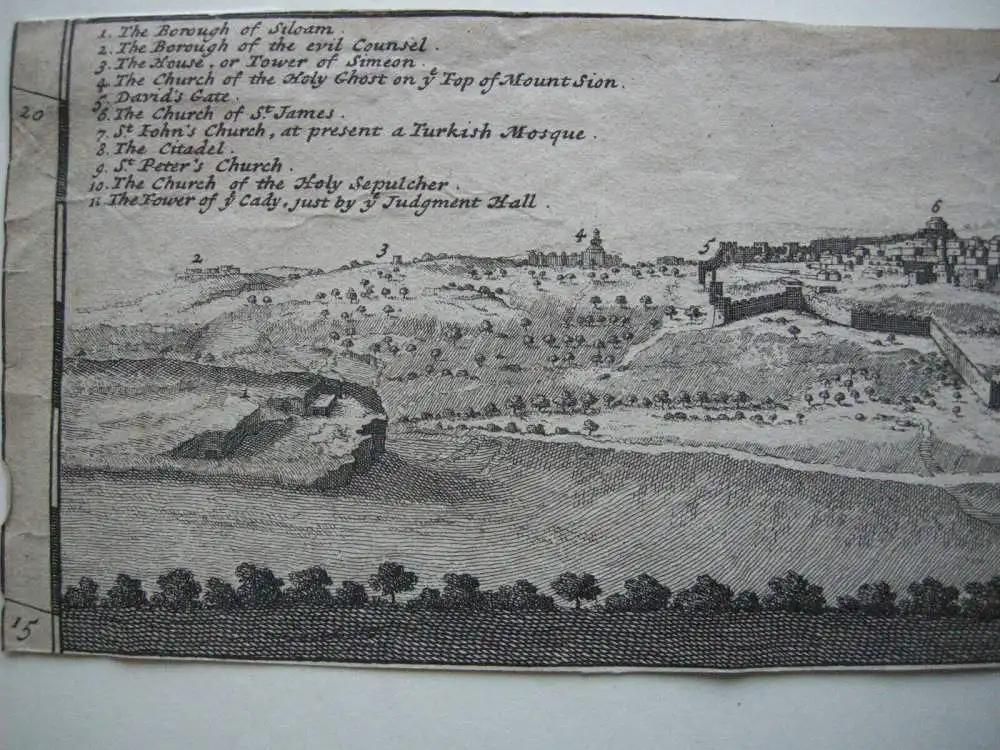 1. The Borough of Siloam.
2. The Borough of the evil Counsel.
3. The House, or Tower of Simeon.
4. The Church of the Holy Ghost on yᵉ Top of Mount Sion.
5. David's Gate.
6. The Church of Sᵗ James.
7. Sᵗ Iohn's Church, at present a Turkish Mosque.
8. The Citadel.
9. Sᵗ Peter's Church.
10. The Church of the Holy Sepulcher.
11. The Tower of yᵉ Cady, just by yᵉ Judgment Hall.
20
2
3
4
5
6
1
15